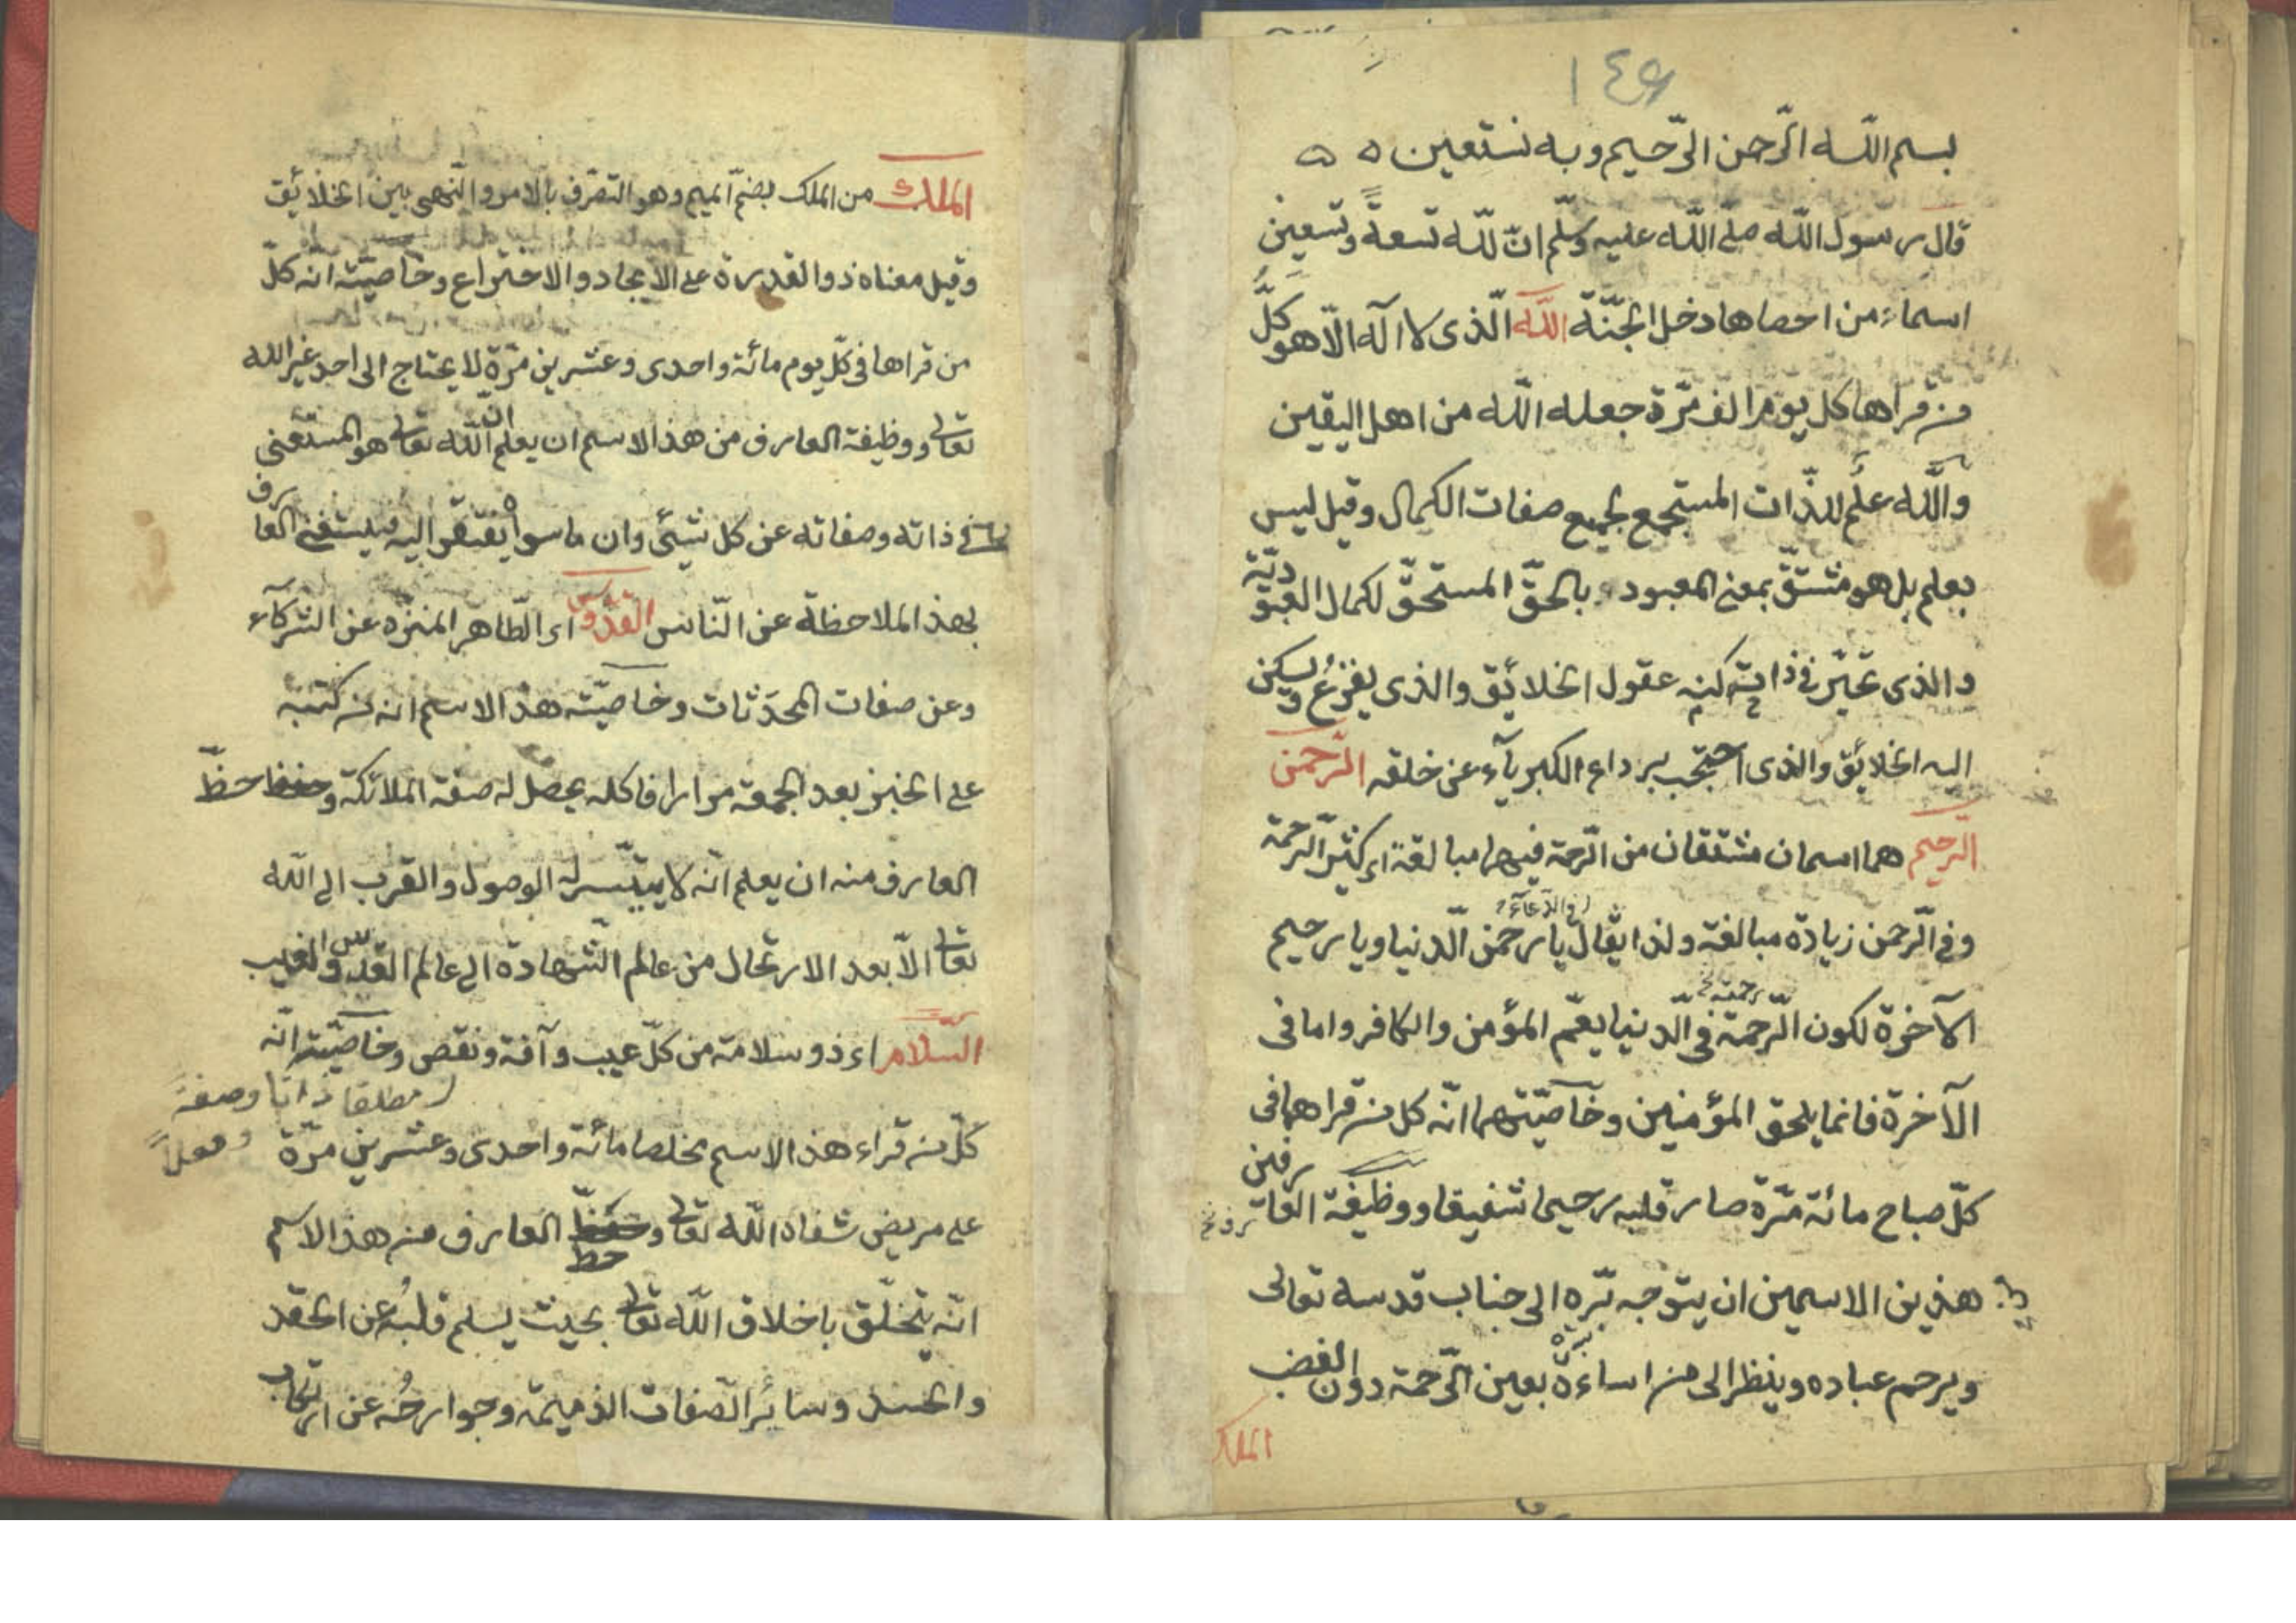 ١٤٩
بسم اللّه الرّحمن الرّحيم وبه نستعين ه ه
قال رسول اللّه صلّى اللّه عليه وسلّم انّ للّه تسعةً وتسعين
اسماء من احصاها دخل الجنّة اللّه الّذى لا اله الّا هو كلُّ
من قراها كل يوم الف مرّة جعله اللّه من اهل اليقين
واللّه علم للذّات المستجمع لجميع صفات الكمال وقيل ليس
بعلم بل هو مشتقّ بمعنى المعبود بالحقّ المستحقّ لكمال العبوديّة
والذى تحيّر فى ذاته كنه عقول الخلائق والذى يفزعُ ويسكن
اليه الخلائق والذى احتجب برداء الكبرياء عن خلقه الرّحمن
الرّحيم هما اسمان مشتقان من الرّحمة فيهما مبالغة اى كثير الرّحمة
وفى الرّحمن زيادة مبالغة ولذا يقال يا رحمن الدّنيا ويا رحيم
فى الدّعاء
الآخرة لكون الرّحمة فى الدّنيا يعمّ المؤمن والكافر واما فى
رحمته
الآخرة فانما يلحق المؤمنين وخاصّيّتهما انّه كل من قراهما فى
كلّ صباح مائة مرّة صار قلبه رحيما شفيقا ووظيفة العارفين
هذين الاسمين ان يتوجه بسّره الى جناب قدسه تعالى
ويرحم عباده وينظر الى من اساءه بعين الرّحمة دون الغضب
الملك
الملك من الملك بضمّ الميم وهو التصرّف بالامر والنّهى بين الخلائق
وقيل معناه ذو القدرة على الايجاد والاختراع وخاصيّته انّه كلّ
من قراها فى كلّ يوم مائة واحدى وعشرين مرّة لا يحتاج الى احد غير الله
تعالى ووظيفة العارف من هذا الاسم ان يعلم انّ اللّه تعالى هو المستغنى
فى ذاته وصفاته عن كل شئ وان ما سواه يفتقر اليه فيستغنى العارف
بهذ الملاحظة عن النّاس القدّوس اى الطّاهر المنزّه عن الشركآء
وعن صفات المحدَثات وخاصيّته هذ الاسم انه من كتبه
على الخبز بعد الجمعة مرارا فاكله يحصل له صفة الملائكة و حظّ
العارف منه ان يعلم انّه لا يتيسّر له الوصول والقرب الى اللّه
تعالى الّا بعد الارتحال من عالم الشّهادة الى عالم القدس والغيب
السّلام اى ذو سلامة من كلّ عيب وآفة ونقص وخاصّيّته انّه
مطلقا ذاتا وصفةً
وفعلاً
كلّ من قراء هذ الاسم مخلصا مائة واحدى وعشرين مرّة
على مريض شفاه اللّه تعالى و حظ العارف من هذ الاسم
انّه يتخلّق باخلاق اللّه تعالى بحيث يسلم قلبُه عن الحقد
والحسد وسائر الصّفات الذميمة وجوارحُه عن ارتكاب